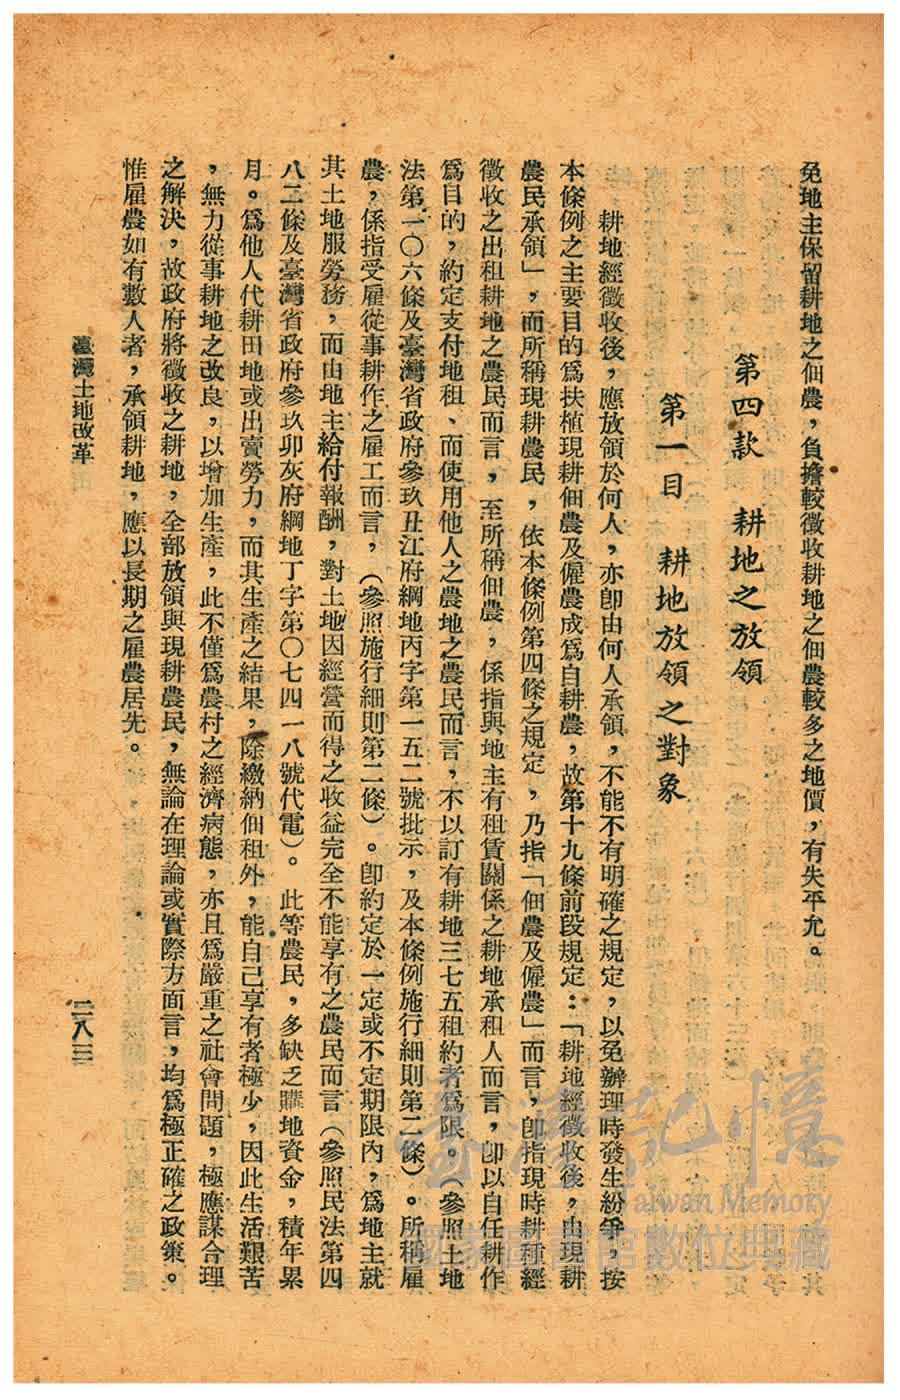 免地主保留耕地之佃農，負擔較徵收耕地之佃農較多之地價，有失平允。
第四款　耕地之放領
第一目　耕地放領之對象
耕地經徵收後，應放領於何人，亦卽由何人承領，不能不有明確之規定，以免辦理時發生紛爭，按
本條例之主要目的爲扶植現耕佃農及僱農成爲自耕農，故第十九條前段規定：「耕地經徵收後，由現耕
農民承領」，而所稱現耕農民，依本條例第四條之規定，乃指「佃農及僱農」而言，卽指現時耕種經
徵收之出租耕地之農民而言，至所稱佃農，係指與地主有租賃關係之耕地承租人而言，卽以自任耕作
爲目的，約定支付地租、而使用他人之農地之農民而言，不以訂有耕地三七五租約者爲限。（參照土地
法第一〇六條及臺灣省政府參玖丑江府綱地丙字第一五二號批示，及本條例施行細則第二條）。所稱雇
農，係指受雇從事耕作之雇工而言，（參照施行細則第二條）。卽約定於一定或不定期限內，爲地主就
其土地服勞務，而由地主給付報酬，對土地因經營而得之收益完全不能享有之農民而言（參照民法第四
八二條及臺灣省政府參玖卯灰府綱地丁字第〇七四一八號代電）。此等農民，多缺乏購地資金，積年累
月。爲他人代耕田地或出賣勞力，而其生產之結果，除繳納佃租外，能自己享有者極少，因此生活艱苦
，無力從事耕地之改良，以增加生產，此不僅爲農村之經濟病態，亦且爲嚴重之社會問題，極應謀合理
之解決，故政府將徵收之耕地，全部放領與現耕農民，無論在理論或實際方面言，均爲極正確之政策。
惟雇農如有數人者，承領耕地，應以長期之雇農居先。
臺灣土地改革
二八三
臺灣記憶
Taiwan Memory
國家圖書館數位典藏